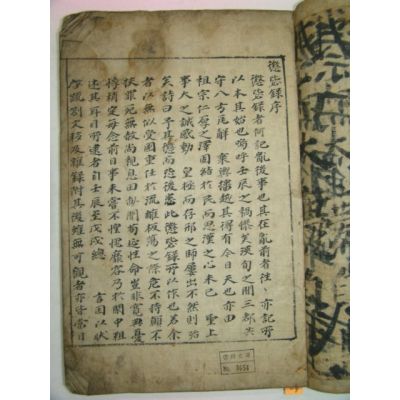 懲毖錄序
懲毖錄者何記亂後事也其在亂前者往〻亦記所
以本其始也嗚呼壬辰之禍慘矣浹旬之間三都失
守八方瓦解 乘輿播越其得有今日天也亦由
祖宗仁厚之澤固結於民而思漢之心未已 聖上
事大之誠感動 皇極而存邢之師屢出不然則殆
矣詩曰予其懲而毖後患此懲毖錄所以作也若余
者以無似受國重任於流離板蕩之際危不持顚不
扶罪死無赦尙視息田畝間苟延性命豈非寬典憂
悸稍定每念前日事未嘗不惶愧靡容乃於閒中粗
述其耳目所逮者自壬辰至戊戌總 言因以狀
啓疏箚文移及雜錄附其後雖無可觀者亦皆當日
No.